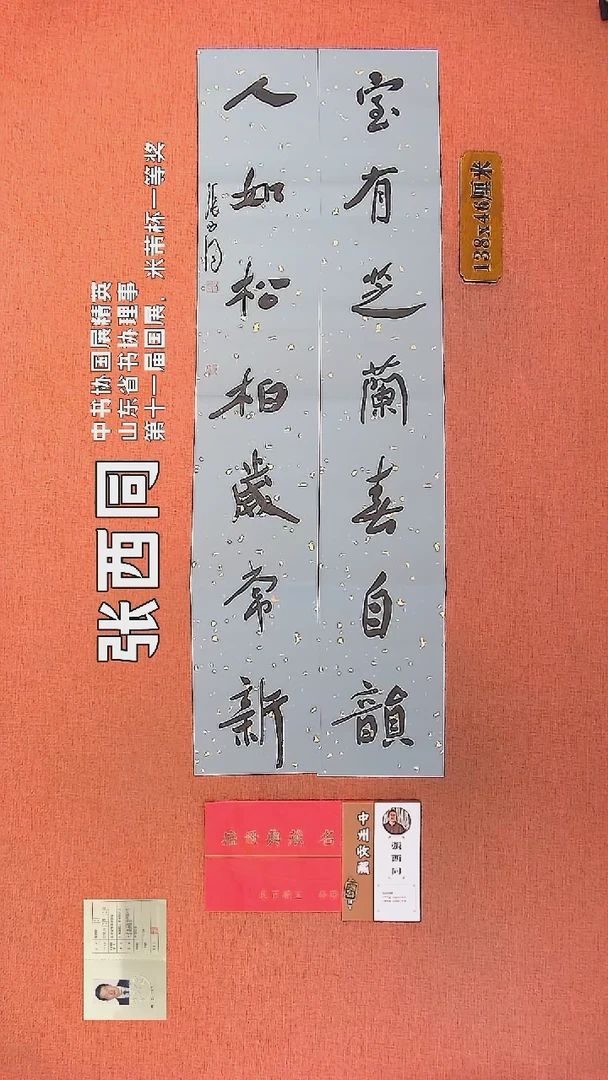 室有芝蘭春自韻
人如松柏歲常新
張西同
138x46厘米
张西同
中书协国展精英
山东省书协理事
第十一届国展、米芾杯一等奖
中州收藏
張西同